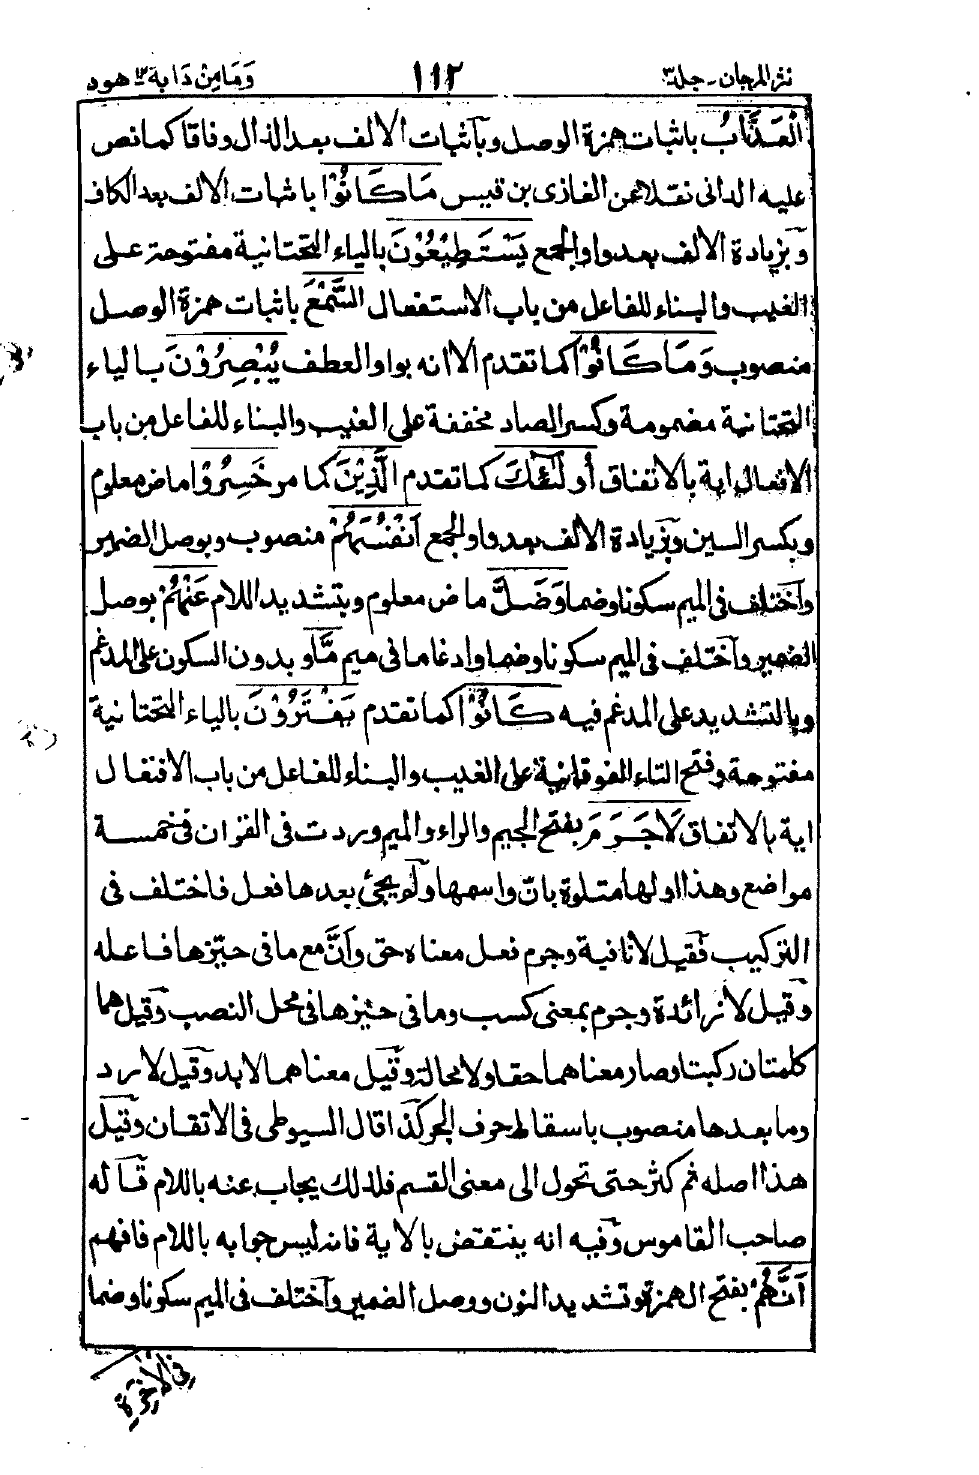 نثر المرجان - جلد ٣ ١١٢ وَمَا مِنْ دَابة ١٢ هود
الْعَذَابُ باثبات همزة الوصل وبآثبات الالف بعد الذال وفاقا كما نص
عليه الدانى نقلا عن الغازى بن قيس مَا كَانُوْا باثبات الالف بعد الكاف
وبزيادة الالف بعد واو الجمع يَسْتَطِيْعُوْنَ بالياء التحتانية مفتوحة على
الغيب والبناء للفاعل من باب الاستفعال السَّمْعَ باثبات همزة الوصل
منصوب وَمَا كَانُوْا كما تقدم الا انه بواو العطف يُبْصِرُوْنَ بالياء
التحتانية مضمومة وكسر الصاد مخففة على الغيب والبناء للفاعل من باب
الافعال اية بالاتفاق أُولٰئِكَ كما تقدم الَّذِيْنَ كما مر خَسِرُوْا ماض معلوم
وبكسر السين وبزيادة الالف بعد واو الجمع أَنْفُسَهُمْ منصوب وبوصل الضمير
وآختلف فى الميم سكونا وضما وَضَلَّ ماض معلوم وبتشديد اللام عَنْهُمْ بوصل
الضمير وآختلف فى الميم سكونا وضما وادغاما فى ميم مَّا وبدون السكون على المدغم
وبالتشديد على المدغم فيه كَانُوْا كما تقدم يَفْتَرُوْنَ بالياء التحتانية
مفتوحة وفتح التاء الفوقانية على الغيب والبناء للفاعل من باب الافتعال
اية بالاتفاق لَاجَرَمَ بفتح الجيم والراء والميم وردت فى القران فى خمسة
مواضع وهذا اولها متلوة بانّ واسمها ولم يجئ بعدها فعل فاختلف فى
التركيب فقيل لا نافية وجرم فعل معناه حق وأنَّ مع ما فى حيّزها فاعله
وقيل لا زائدة وجرم بمعنى كسب وما فى حيّزها فى محل النصب وقيل هما
كلمتان ركبتا وصار معناهما حقا ولا محالة وقيل معناهما لابد وقيل لا رد
وما بعدها منصوب باسقاط حرف الجر كذا قال السيوطى فى الاتقان وقيل
هذا اصله ثم كثر حتى تحول الى معنى القسم فلذلك يجاب عنه باللام قاله
صاحب القاموس وفيه انه ينتقض بالاية فانه ليس جوابه باللام فافهم
أَنَّهُمْ بفتح الهمزة وتشديد النون ووصل الضمير وآختلف فى الميم سكونا وضما
فِى الْاٰخِرَةِ